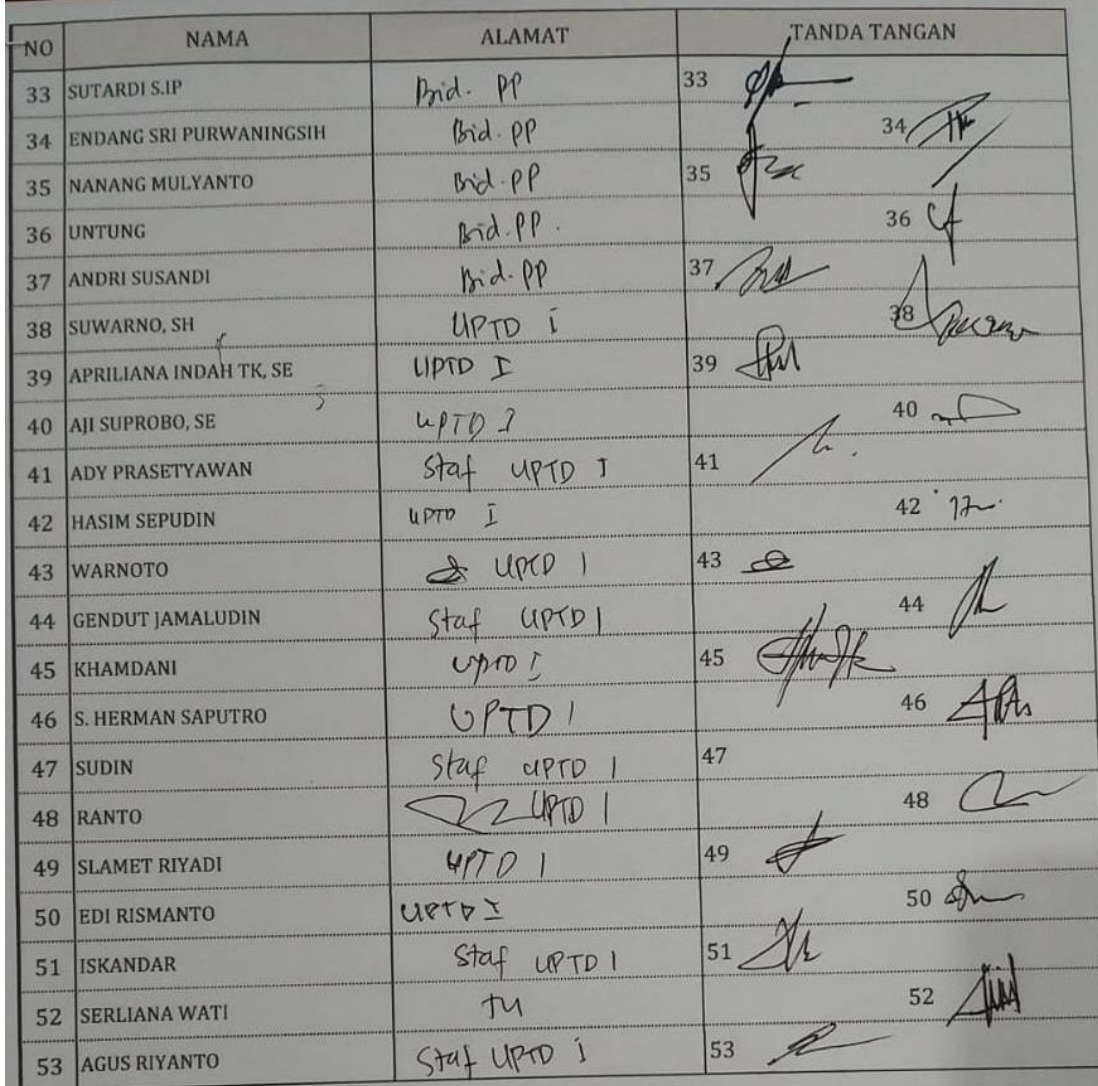 NO NAMA ALAMAT TANDA TANGAN
33 SUTARDI S.IP Bid. PP 33
34 ENDANG SRI PURWANINGSIH Bid. PP 34
35 NANANG MULYANTO Bid. PP 35
36 UNTUNG Bid. PP. 36
37 ANDRI SUSANDI Bid. PP 37
38 SUWARNO, SH UPTD I 38
39 APRILIANA INDAH TK, SE UPTD I 39
40 AJI SUPROBO, SE UPTD I 40
41 ADY PRASETYAWAN Staf UPTD I 41
42 HASIM SEPUDIN UPTD I 42
43 WARNOTO UPTD 1 43
44 GENDUT JAMALUDIN Staf UPTD 1 44
45 KHAMDANI UPTD I 45
46 S. HERMAN SAPUTRO UPTD 1 46
47 SUDIN Staf UPTD 1 47
48 RANTO UPTD 1 48
49 SLAMET RIYADI UPTD 1 49
50 EDI RISMANTO UPTD I 50
51 ISKANDAR Staf UPTD 1 51
52 SERLIANA WATI TU 52
53 AGUS RIYANTO Staf UPTD I 53